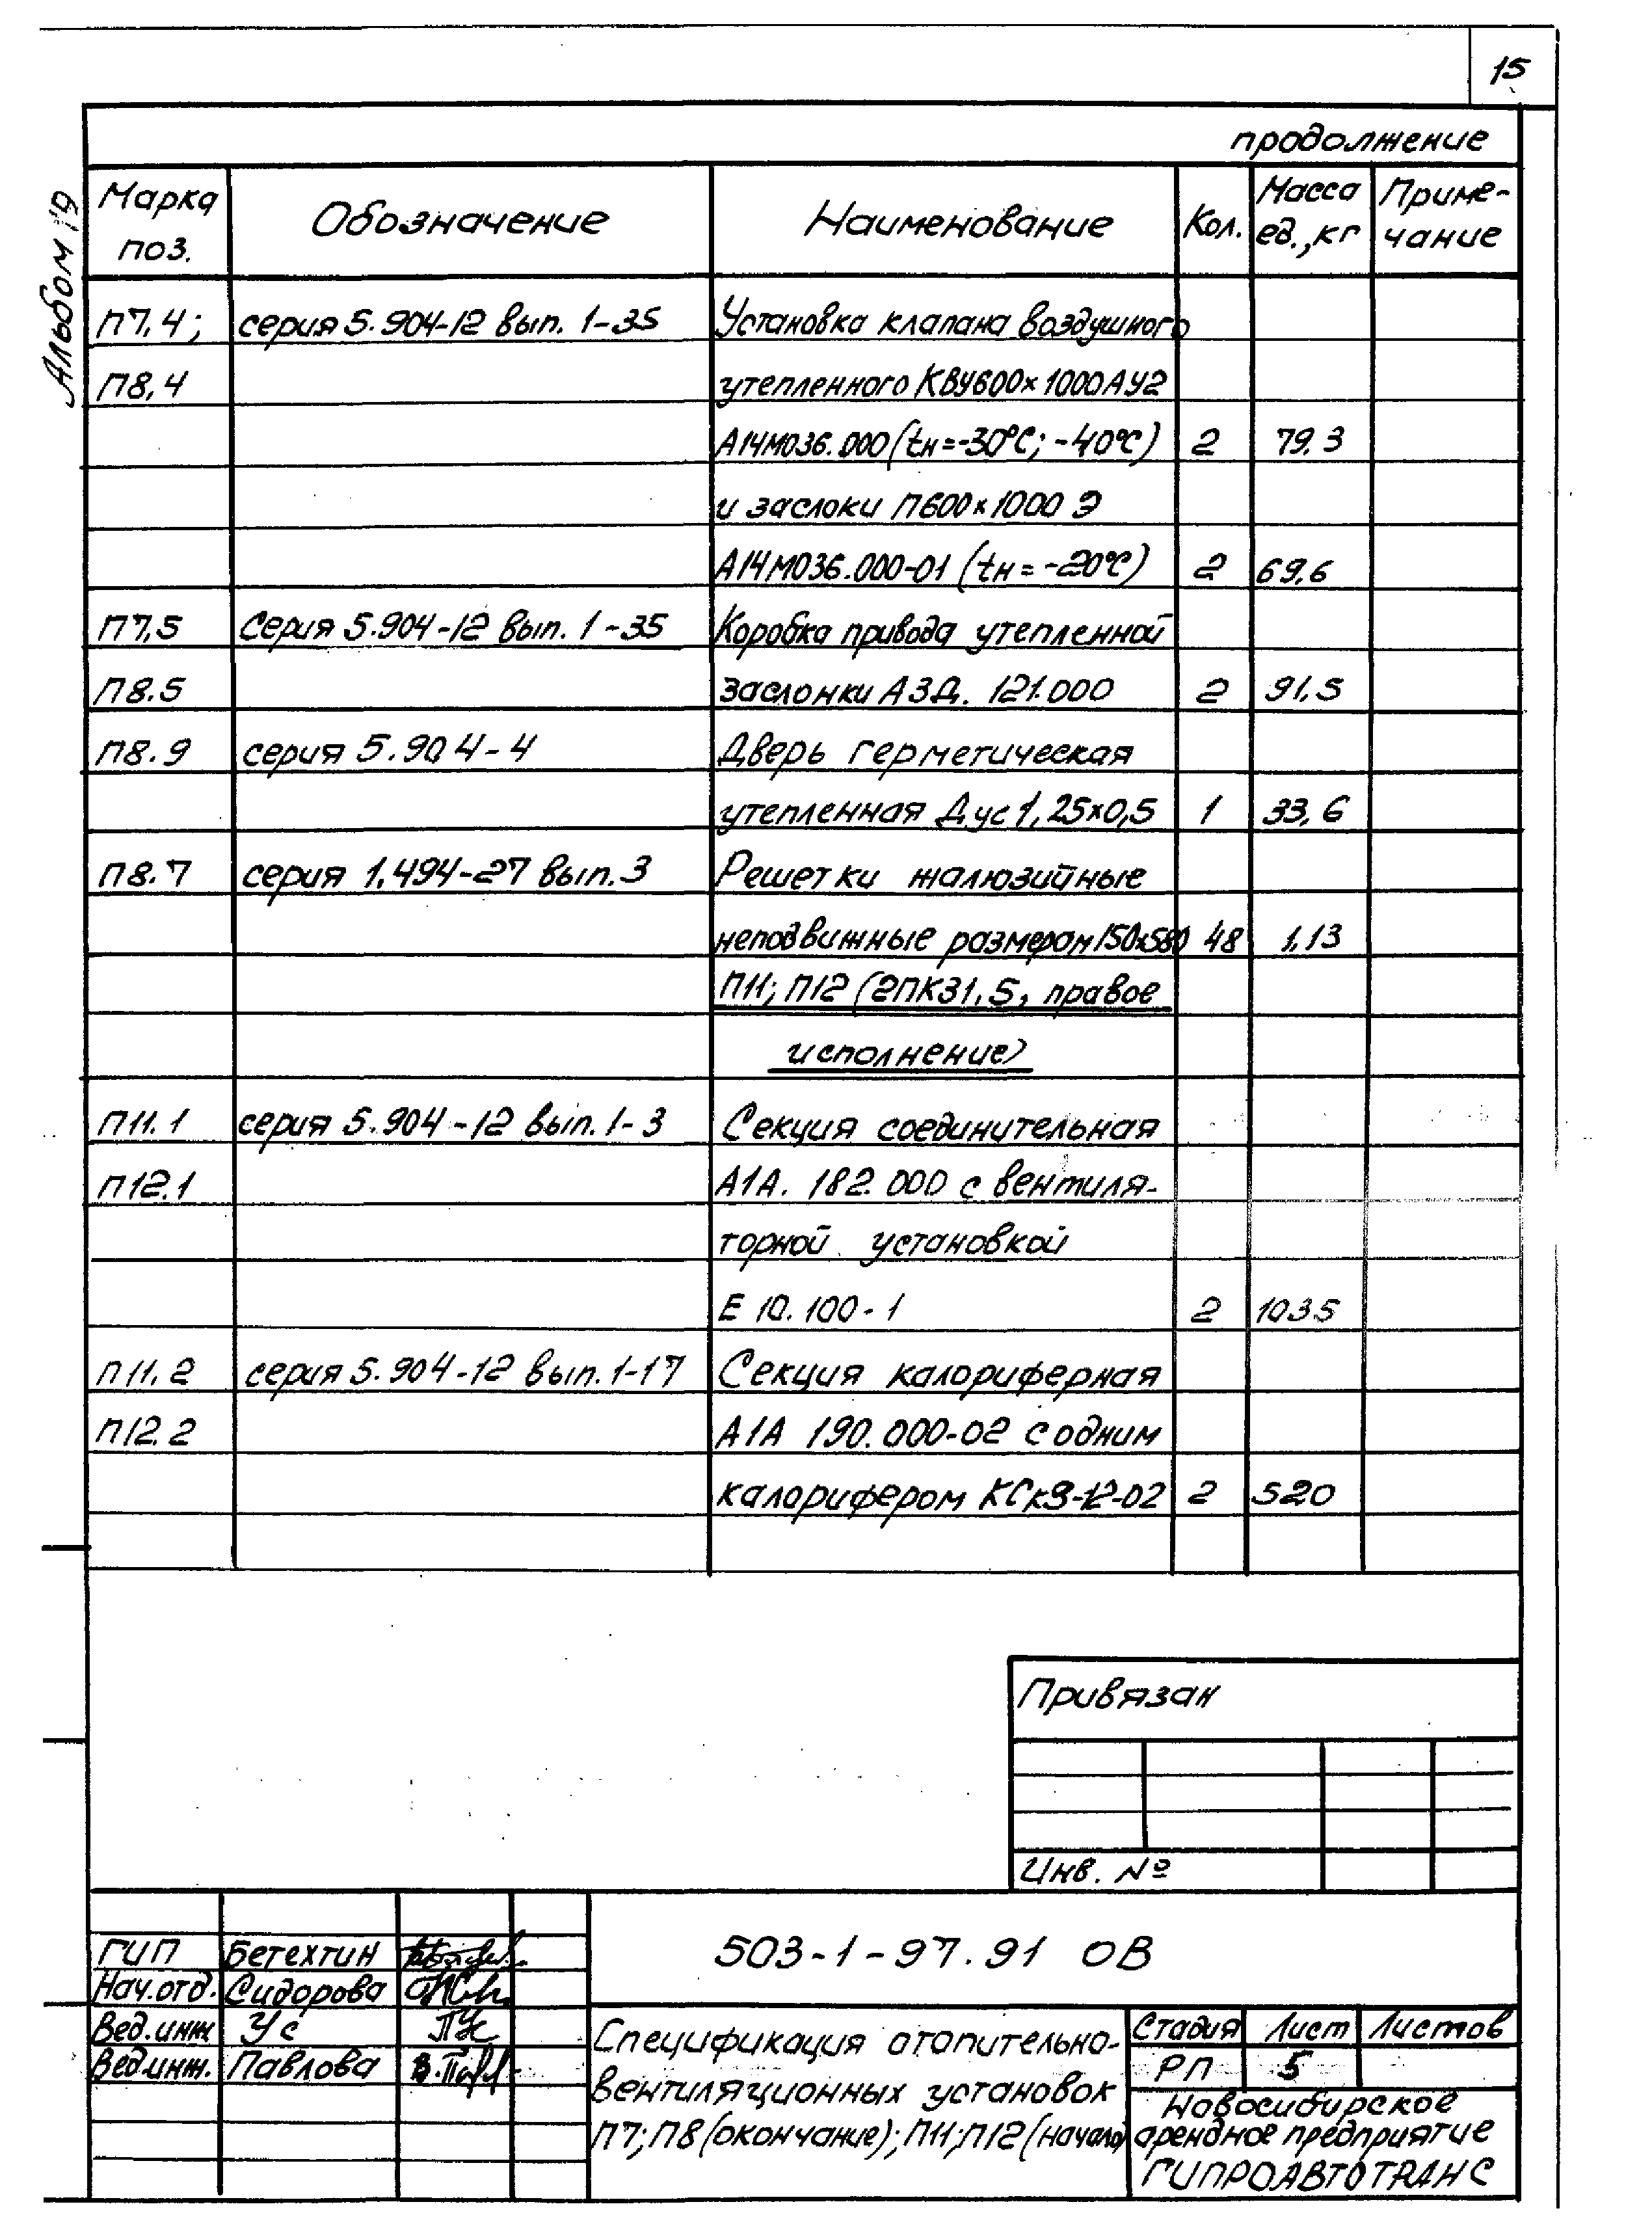 15
Альбом 19
продолжение
Марка поз. Обозначение Наименование Кол. Масса ед., кг Приме-чание
П7.4; серия 5.904-12 вып. 1-35 Установка клапана воздушного
П8.4 утепленного КВУ600х1000АУ2
А14М036.000 (tн=-30°С; -40°С) 2 79.3
и заслоки П600х1000 Э
А14М036.000-01 (tн=-20°С) 2 69,6
П7,5 Серия 5.904-12 вып. 1-35 Коробка привода утепленной
П8.5 заслонки АЗД. 121.000 2 91,5
П8.9 серия 5.904-4 Дверь герметическая
утепленная Дус 1,25х0,5 1 33,6
П8.7 серия 1.494-27 вып.3 Решетки жалюзийные
неподвижные размером 150х580 48 1,13
П11; П12 (2ПК31,5, правое
исполнение)
П11.1 серия 5.904-12 вып.1-3 Секция соединительная
П12.1 А1А. 182.000 с вентиля-
торной установкой
Е 10.100-1 2 1035
П11.2 серия 5.904-12 вып.1-17 Секция калориферная
П12.2 А1А 190.000-02 с одним
калорифером КСк3-12-02 2 520
Привязан
Инв. №
ГИП Бетехтин
Нач.отд. Сидорова
Вед.инж Ус
Вед.инж. Павлова
503-1-97.91 ОВ
Спецификация отопительно-
вентиляционных установок
П7; П8 (окончание); П11; П12 (начало)
Стадия Лист Листов
РП 5
Новосибирское
арендное предприятие
ГИПРОАВТОТРАНС